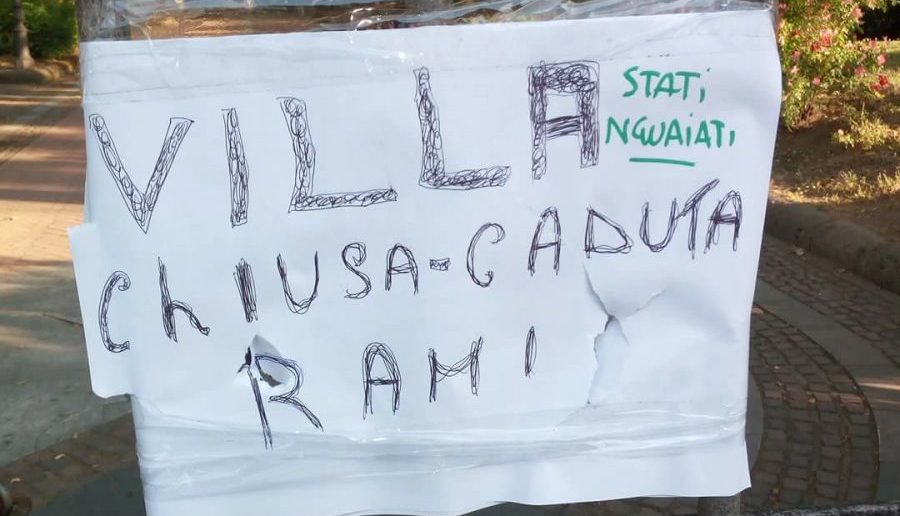 VILLA
STATi
NGUAiATi
ChIUSA-CADUTA
RAMI